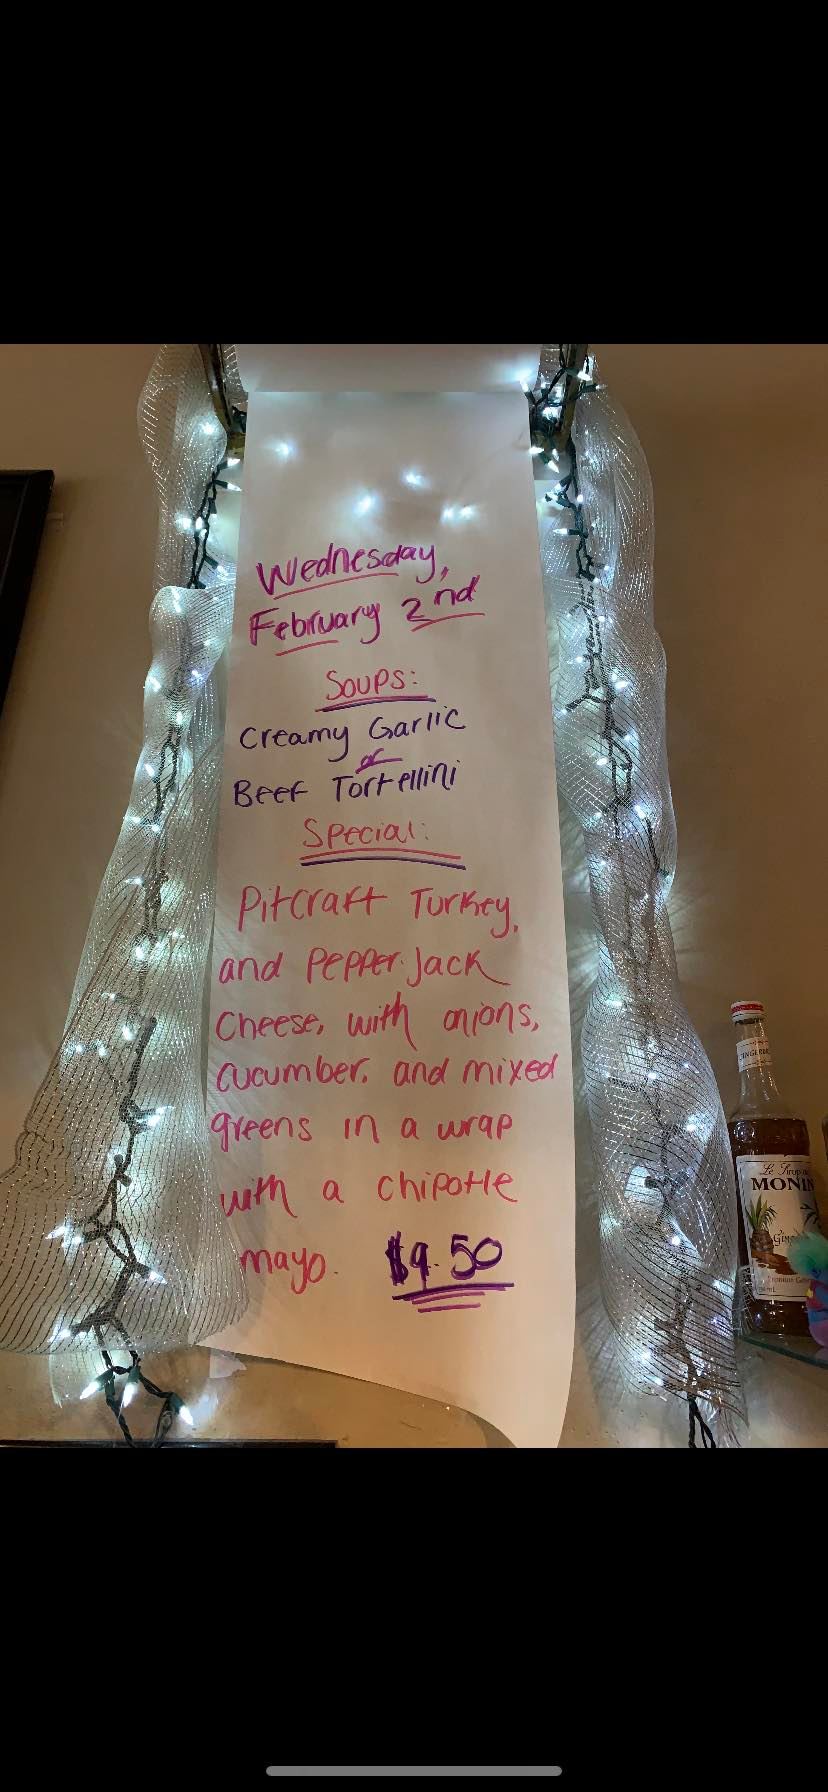 Wednesday,
February 2nd
Soups:
Creamy Garlic
or
Beef Tortellini
Special:
Pitcraft Turkey,
and Pepper Jack
Cheese, with onions,
cucumber, and mixed
greens in a wrap
with a chipotle
mayo. $9.50
Le Sirop de
MONIN